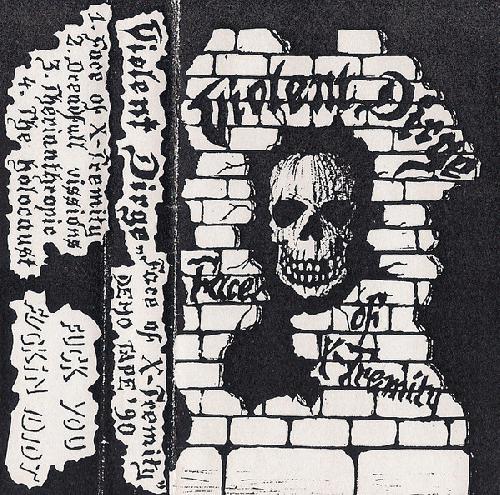 Violent Dirge
Face
of
X-Tremity
Violent Dirge "Face of X-Tremity"
DEMO TAPE '90
1. Face of X-Tremity
2. Dreadfull vissions
3. Therianthropic
4. The holocaust
FUCK YOU
FUCKIN IDIOT